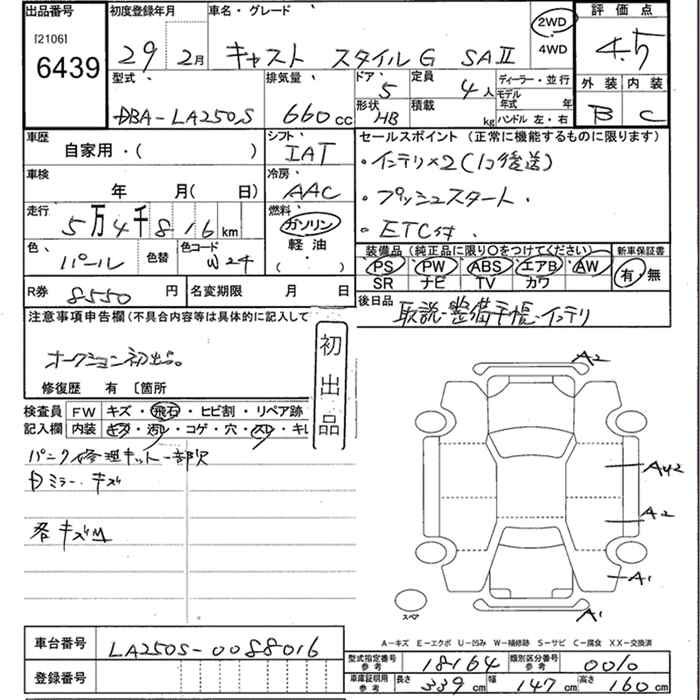 出品番号 初度登録年月 車名・グレード 2WD 評価点
[2106] 6439 29年 2月 キャスト スタイルG SAⅡ 4WD 4.5
型式 排気量 ドア 5 定員 4人 ディーラー・並行 外装 内装
DBA-LA250S 660cc 形状 HB 積載 kg モデル年式 年 ハンドル 左・右 B C
車歴 シフト セールスポイント (正常に機能するものに限ります)
自家用・( ) IAT ・インテリ×2(1コ後送)
車検 冷房 ・プッシュスタート
年 月( 日) AAC ・ETC付
走行 燃料
5万4千816km ガソリン 装備品(純正品に限り〇をつけてください) 新車保証書
色 色替 色コード 軽油 PS PW ABS エアB AW 有・無
パール W24 ( ) SR ナビ TV カワ
R券 8550円 名変期限 月 日 後日品 取説・整備手帳・インテリ
注意事項申告欄(不具合内容等は具体的に記入して
オークション初出。
初出品
修復歴 有 〔箇所
検査員 FW キズ・飛石・ヒビ割・リペア跡
記入欄 内装 キズ・汚レ・コゲ・穴・スレ・キレ
パンク修理キット一部欠
ミラー・キズ
各キズ
A2
A2
A1
A1
スペア
A-キズ E-エクボ U-凹み W-補修跡 S-サビ C-腐食 XX-交換済
車台番号 LA250S-0088016
型式指定番号 参考 18164 類別区分番号 参考 0010
登録番号
車庫証明用 参考 長さ 339cm 幅 147cm 高さ 160cm